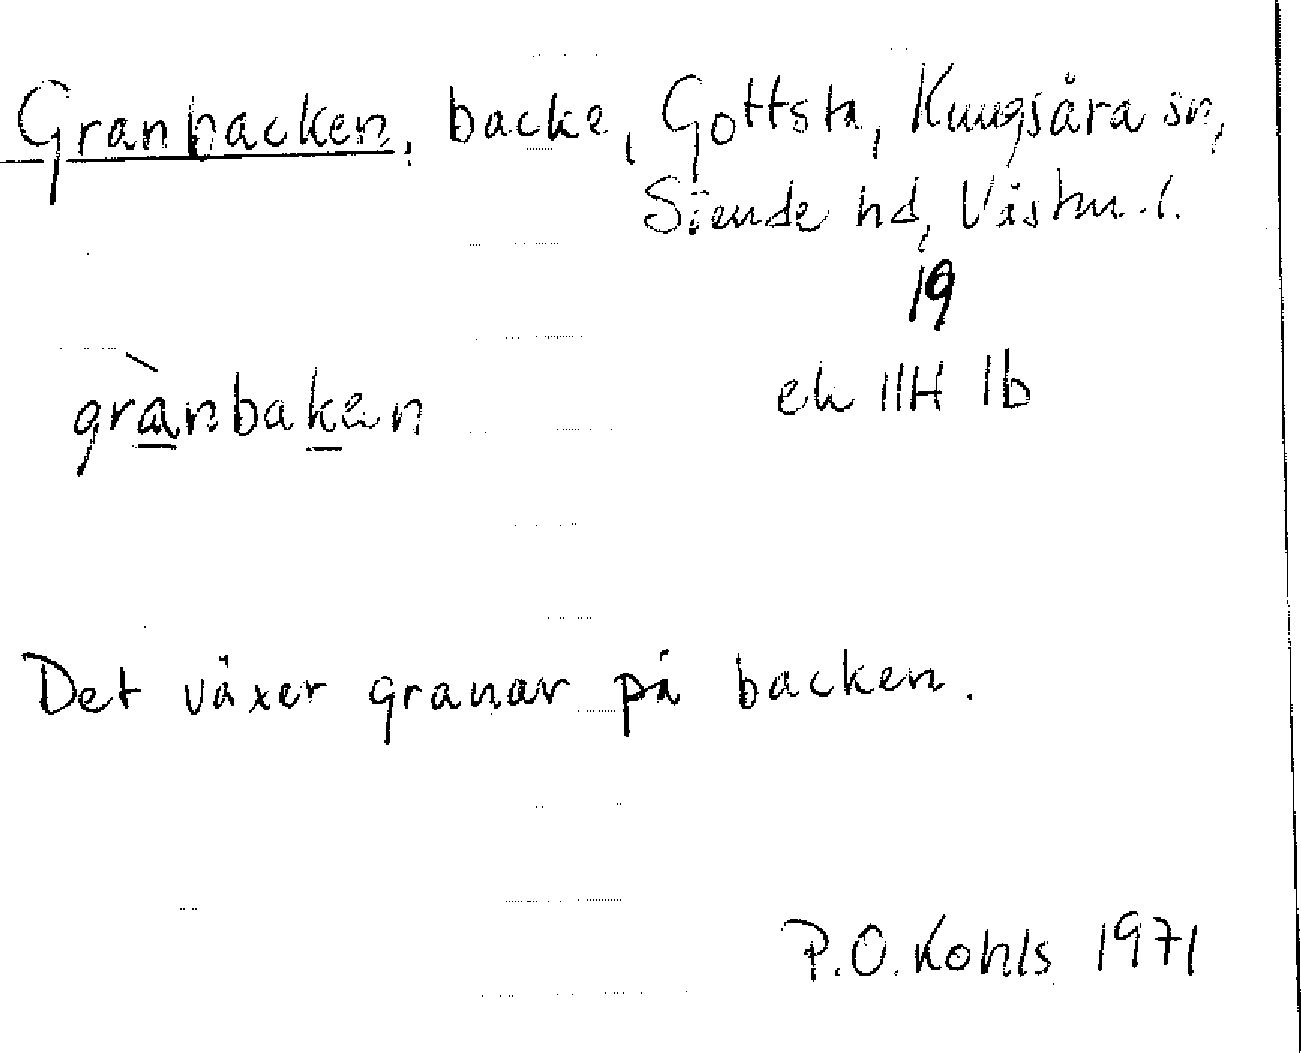 Granbacken, backe, Gottsta, Kungsåra sn,
Siende hd, Västm. l.
19
grànbaken
ek 11H 1b
Det växer granar på backen.
P.O. Kohls 1971